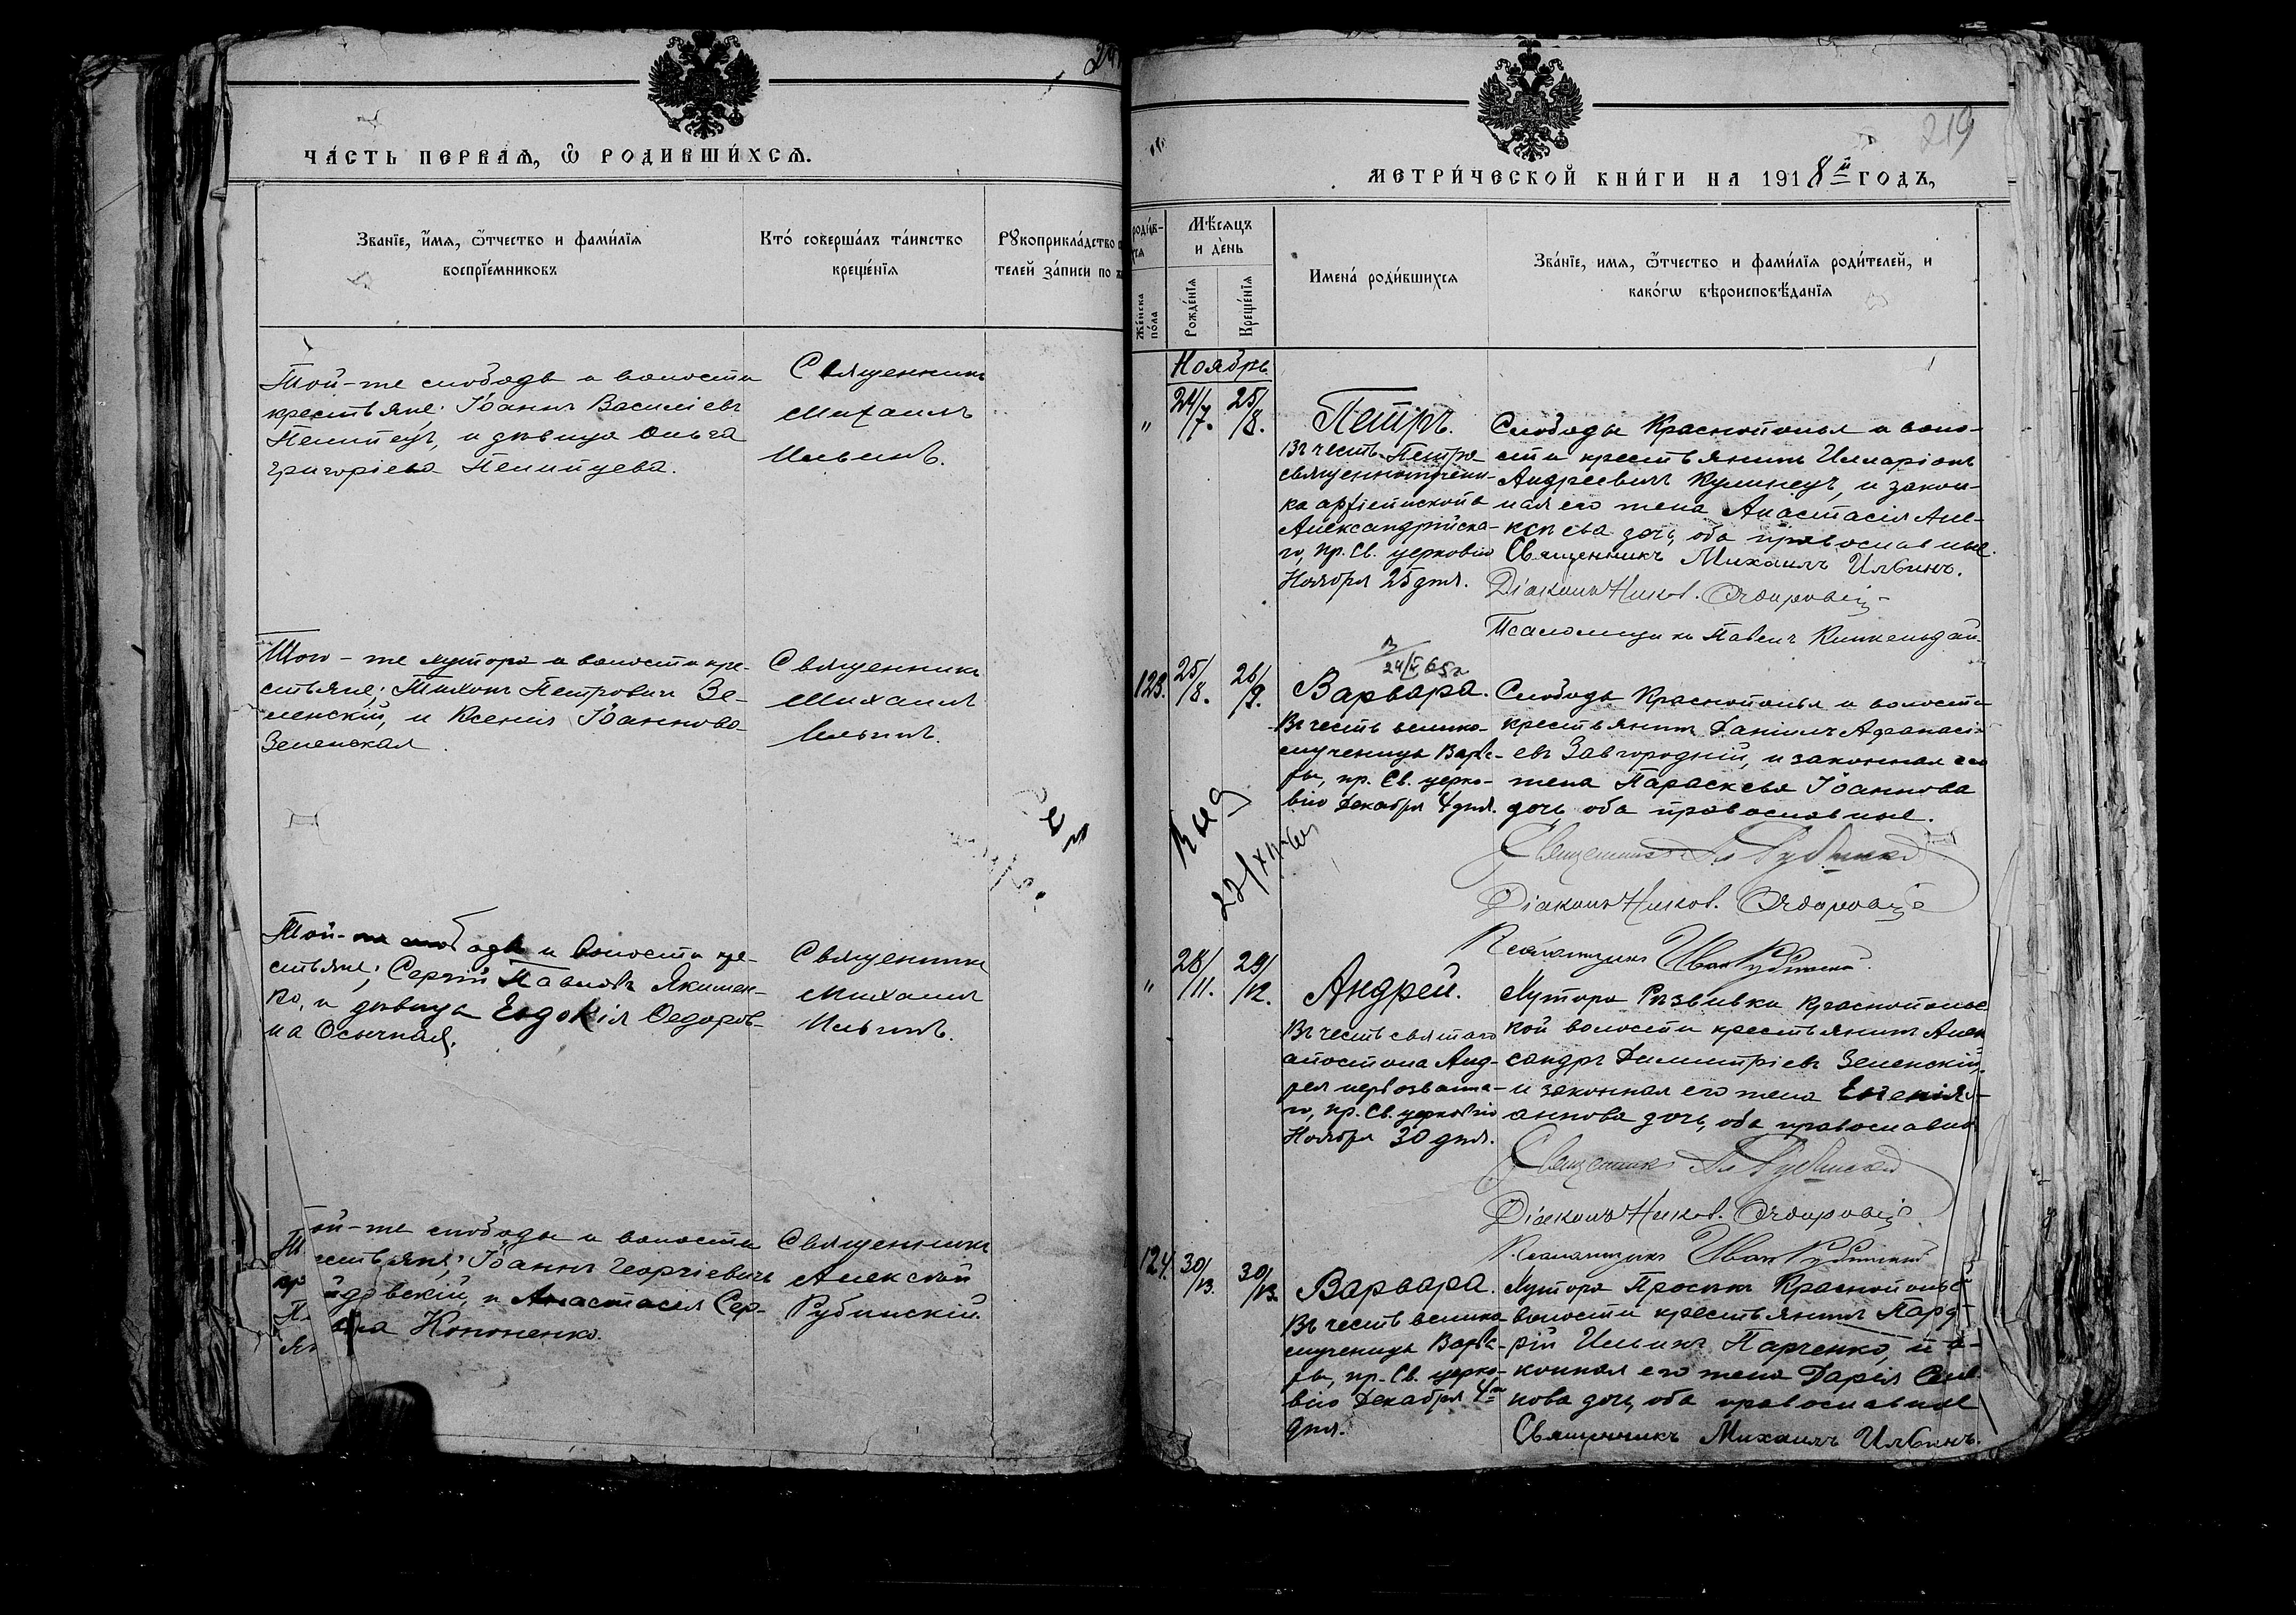 ЧА́СТЬ ПЕРВАЯ, Ѽ РОДИВШИ́ХСЯ.
Зва́нїе, и́мя, ѻ́тчество и фами́лїя
воспрїе́мниковъ
Кто́ соверша́лъ та́инство
креще́нїя
Рꙋкоприкла́дство
телей за́писи по
Той-же слободы и волости
крестьяне: Іоаннъ Василіевъ
и дѣвица Ольга
Григоріева
Священникъ
Михаилъ
Ильинъ.
Того-же хутора и волости кре-
стьяне; Тихонъ Петровичъ Зе-
ленскій, и Ксенія Іоаннова
Зеленская.
Священникъ
Михаилъ
Ильинъ.
Той-же слободы и волости кре-
стьяне; Сергій Павловъ Якимен-
ко, и дѣвица Евдокія Ѳедоров-
на Осычная.
Священникъ
Михаилъ
Ильинъ.
ой-же слободы и волости
стьяне; Іоаннъ Георгіевичъ
и Анастасія Сер-
Кононенко.
Священникъ
Алексѣй
Рубинскій.
219
МЕТРИ́ЧЕСКОЙ КНИ́ГИ НА 1918й ГОДЪ,
Же́нска
по́ла
Мѣ́сяцъ
и де́нь
Рожде́нїя
Креще́нїя
Имена́ роди́вшихся
Зва́нїе, имя, ѻ́тчество и фами́лїя роди́телей, и
како́гѡ вѣроисповѣ́данїя
Ноябрь
" 24/7. 25/8.
Петръ.
Въ честь Петра
священномучени-
ка архіепископа
Александрійска-
го, пр. Св. церковію
Ноября 25 дня.
Слободы Краснополья и воло-
сти крестьянинъ Иларіонъ
Андреевичъ Кулинец, и закон-
ная его жена Анастасія Але-
ксѣева дочь, оба православные.
Священникъ Михаилъ Ильинъ.
Діаконъ Никол.
Псаломщикъ Павелъ
123. 25/8. 26/9.
Варвара.
Въ честь велико-
мученицы Варва-
ры, пр. Св. церко-
вію Декабря 4 дня.
Слободы Краснополья и волости
крестьянинъ Даніилъ Аѳанасі-
евъ Завгородній, и законная его
жена Параскева Іоаннова
дочь, оба православные.
Священникъ Ал Рубинскій
Діаконъ Никол.
Псаломщикъ Иван Рубинскій.
" 28/11. 29/12.
Андрей.
Въ честь святаго
апостола Анд-
рея первозванна-
го, пр. Св. церковію
Ноября 30 дня.
Хутора Розвивки Краснополь
кой волости крестьянинъ Алек
сандръ Димитріевъ Зеленскій,
и законная его жена Евгенія
аннова дочь, оба православны
Священникъ Ал Рубинскій
Діаконъ Никол.
Псаломщикъ Иван Рубинскій
124. 30/13. 30/13.
Варвара.
Въ честь велико-
мученицы Варва-
ры, пр. Св. церко-
вію Декабря 4го
дня.
Хутора Просъки Краснополь
волости крестьянинъ
рій Ильинъ Парченко, и за-
конная его жена Дарія
нова дочь, оба православные
Священникъ Михаилъ Ильинъ.